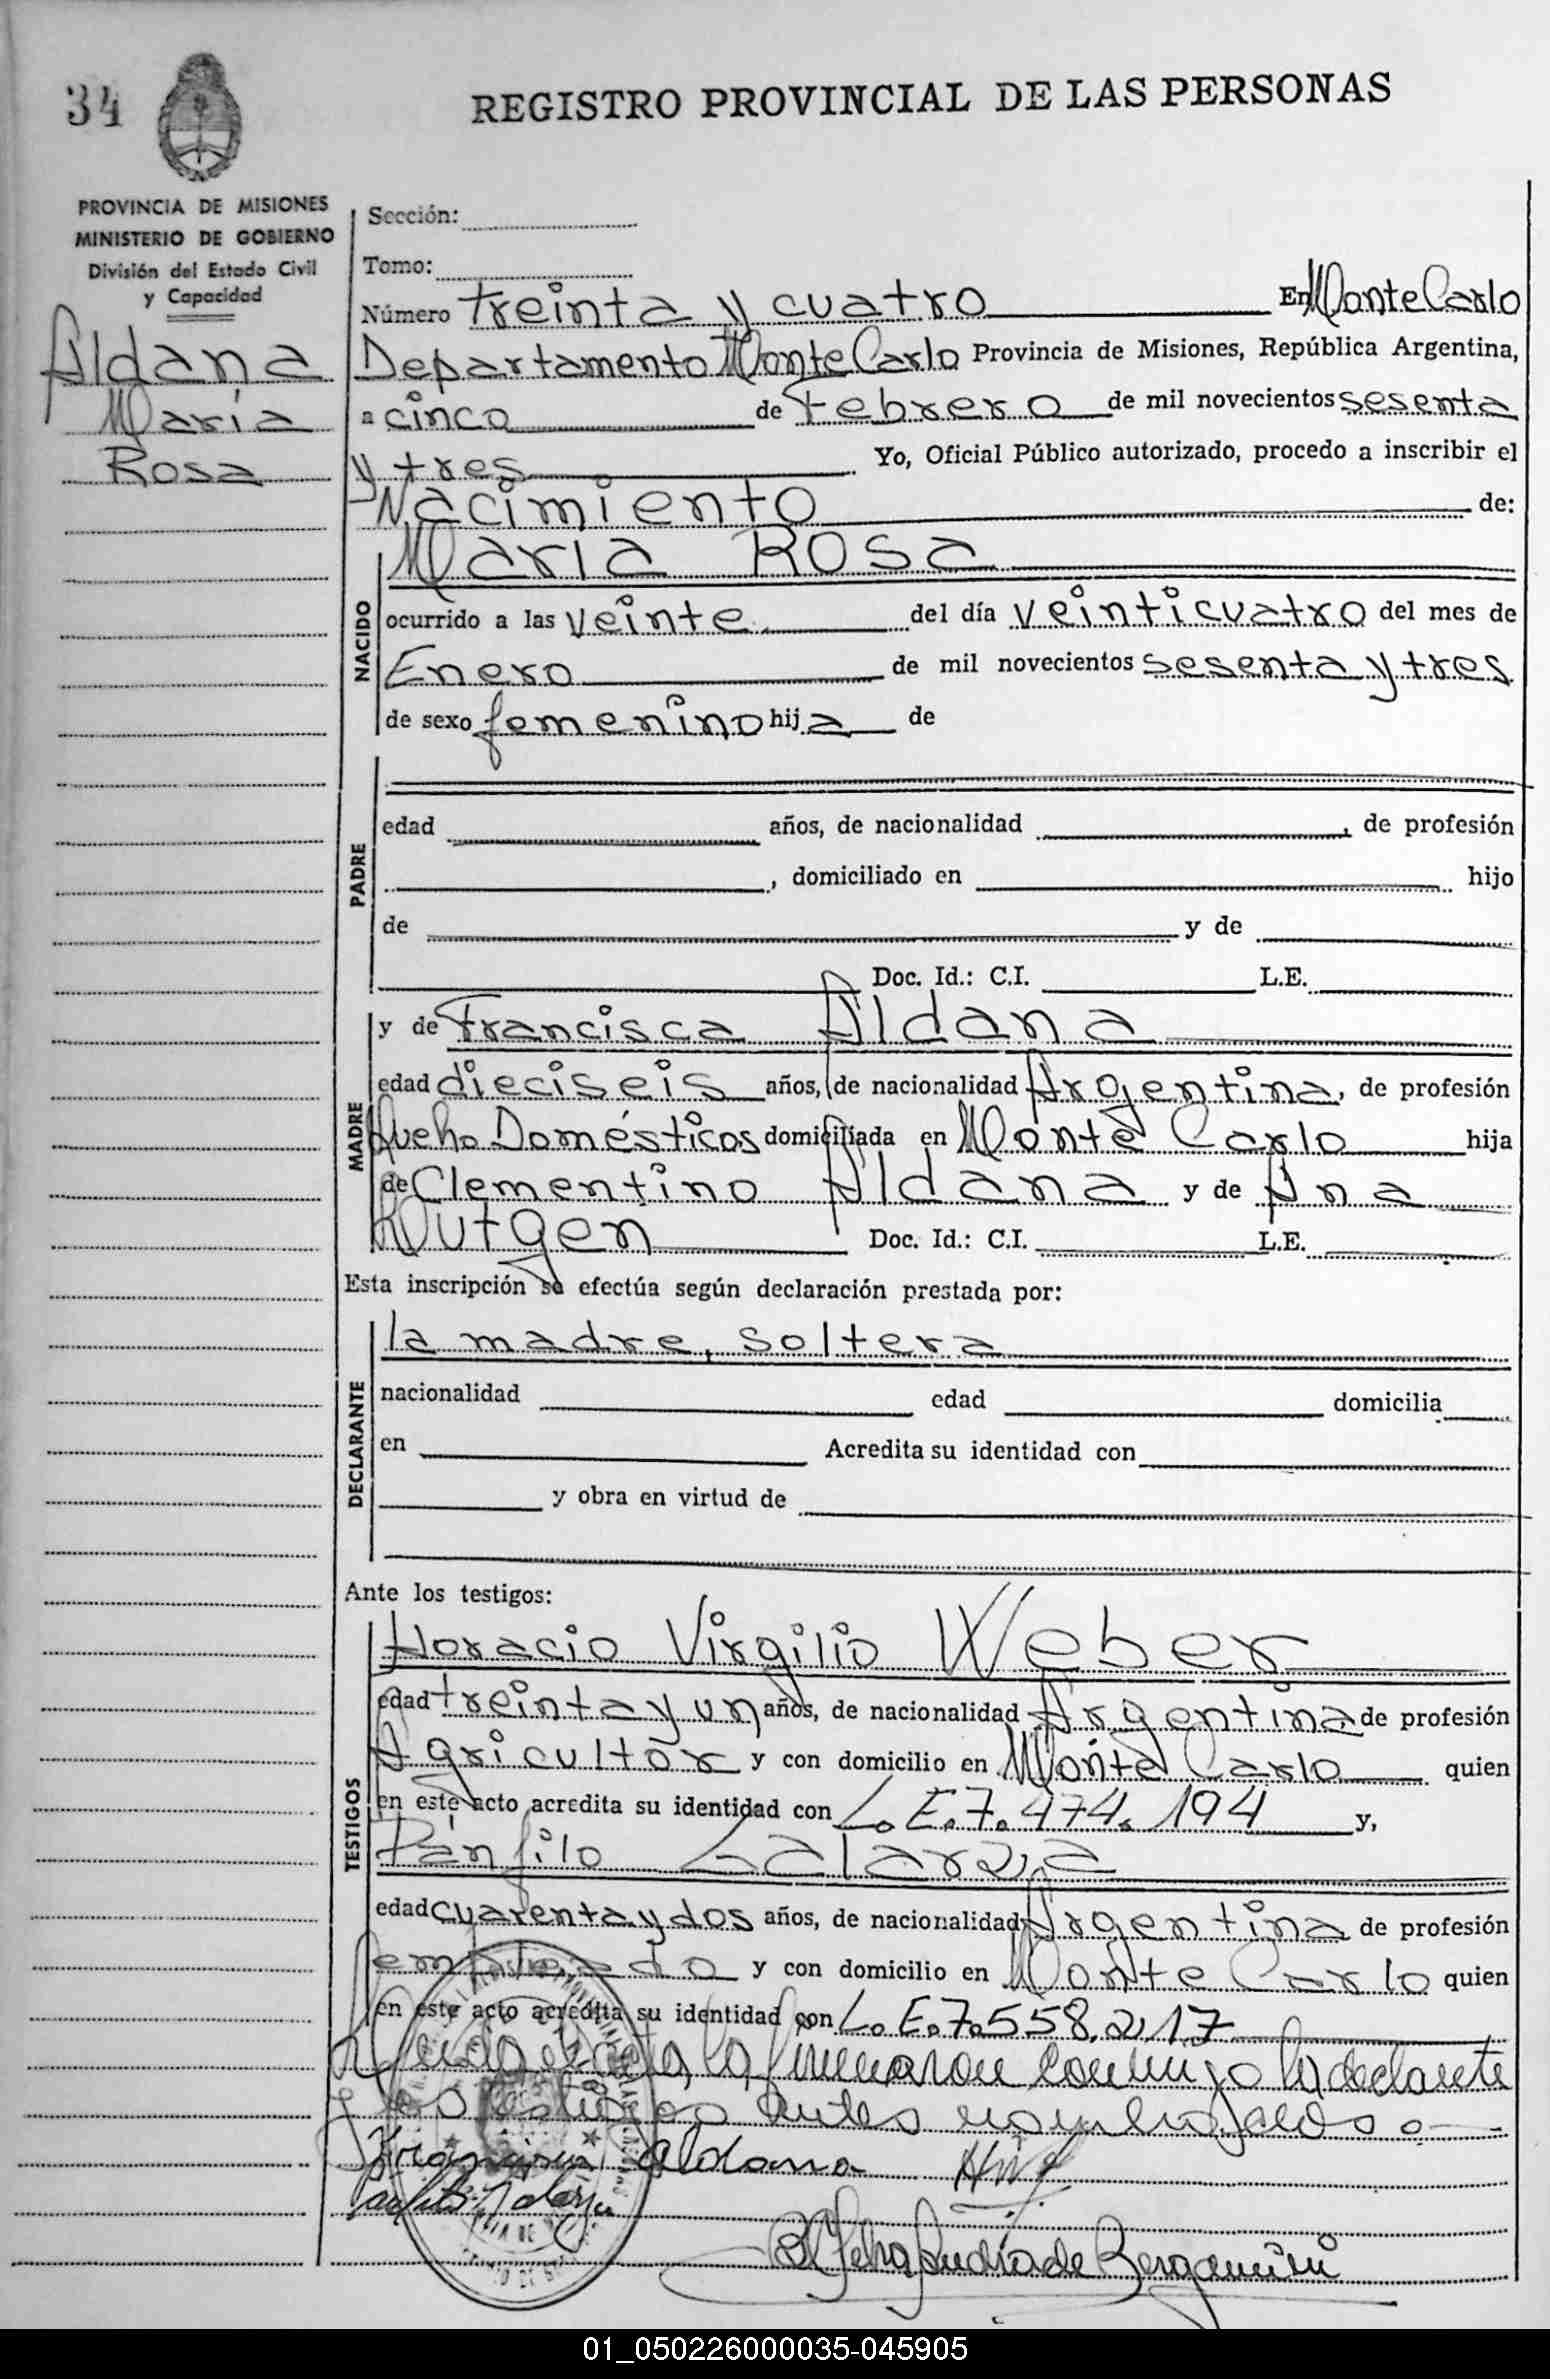 34
REGISTRO PROVINCIAL DE LAS PERSONAS
PROVINCIA DE MISIONES
MINISTERIO DE GOBIERNO
División del Estado Civil
y Capacidad
Aldana
María
Rosa
Sección:
Tomo:
Número treinta y cuatro En Monte Carlo
Departamento Monte Carlo Provincia de Misiones, República Argentina,
a cinco de Febrero de mil novecientos sesenta
y tres Yo, Oficial Público autorizado, procedo a inscribir el
Nacimiento de:
NACIDO
María Rosa
ocurrido a las veinte del día veinticuatro del mes de
Enero de mil novecientos sesenta y tres
de sexo femenino hija de
PADRE
edad años, de nacionalidad , de profesión
, domiciliado en hijo
de y de
Doc. Id.: C.I. L.E.
MADRE
y de Francisca Aldana
edad dieciseis años, de nacionalidad Argentina, de profesión
Domésticos domiciliada en Monte Carlo hija
de Clementino Aldana y de Ana
Doc. Id.: C.I. L.E.
Esta inscripción se efectúa según declaración prestada por:
DECLARANTE
la madre, soltera
nacionalidad edad domicilia
en Acredita su identidad con
y obra en virtud de
Ante los testigos:
TESTIGOS
Horacio Virgilio Weber
edad treinta y un años, de nacionalidad Argentina de profesión
Agricultor y con domicilio en Monte Carlo quien
en este acto acredita su identidad con L.E.7.474.194 y,
Pánfilo
edad cuarenta y dos años, de nacionalidad Argentina de profesión
empleado y con domicilio en Monte Carlo quien
en este acto acredita su identidad con L.E.7.558.217
Leida el acta, la firmaron conmigo la declarante
y los testigos antes nombrados.
Francisca Aldana
de Bergamini
01_050226000035-045905